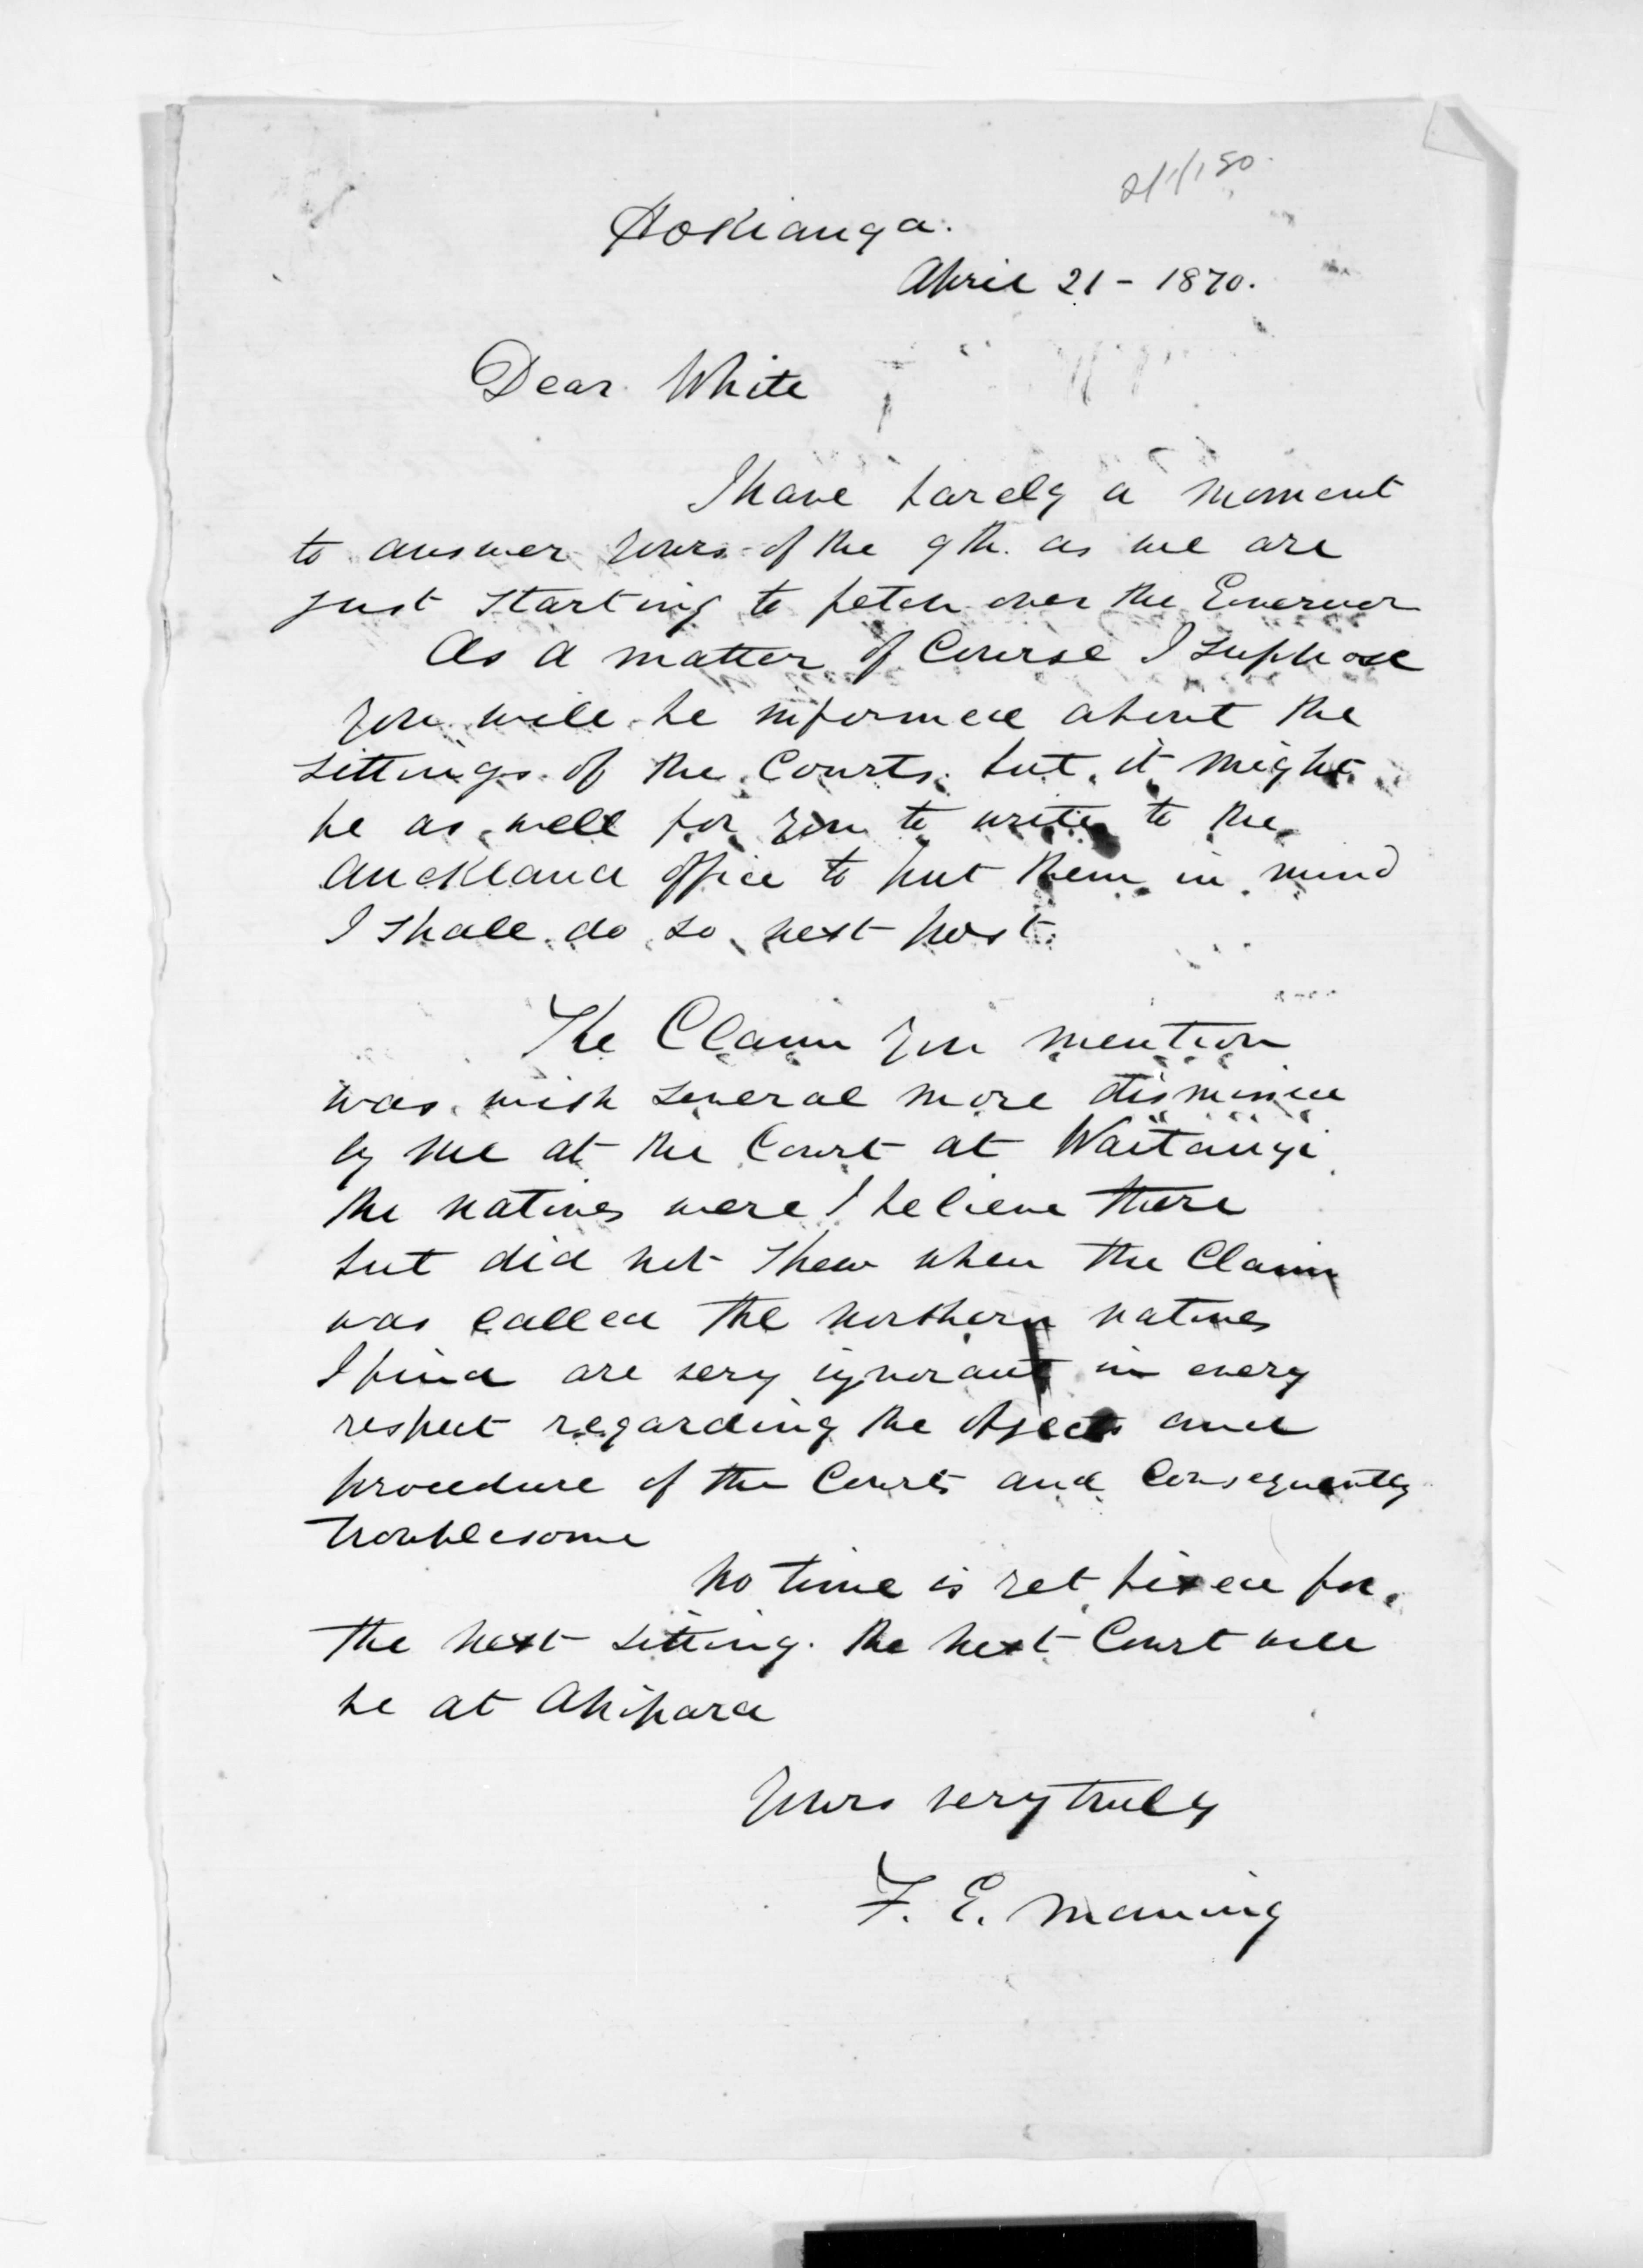 Hokianga.
April 21 - 1870.
Dear White
I have barely a moment
to answer yours of the 9th. as we are
just starting to fetch over the Governor
As a matter of Course I suppose
you will be informed about the
sittings of the Courts. but it might
be as well for you to write to the
Auckland office to put them in mind
I shall do so next post.
The Claim you mention
was with several more dismissed
by me at the Court at Waitangi
the natives were I believe there
but did not shew when the Claim
was called the northern natives
I find are very ignorant in every
respect regarding the objects and
procedure of the Courts and Consequently
troublesome
No time is yet fixed for
the next sitting. the next Court will
be at Ahipara
Yours very truly
F. E. Maning